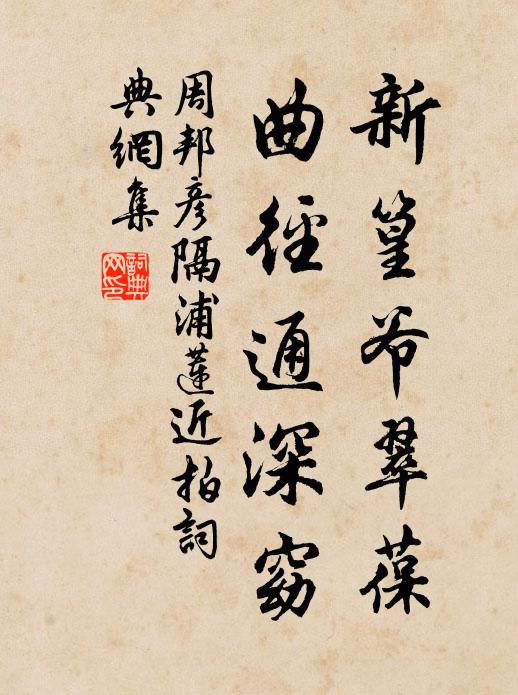 新篁爷翠葆
曲徑通深窈
周邦彥隔浦蓮近拍詞
典網集
詞典
网印